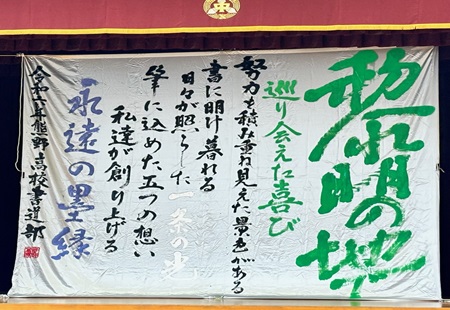 黎明の地
巡り会えた喜び
努力を積み重ね見えた景色がある
書に明け暮れる
日々が照らした一条の光
筆に込めた五つの想い
私達が創り上げる
永遠の墨縁
令和六年熊野高校書道部